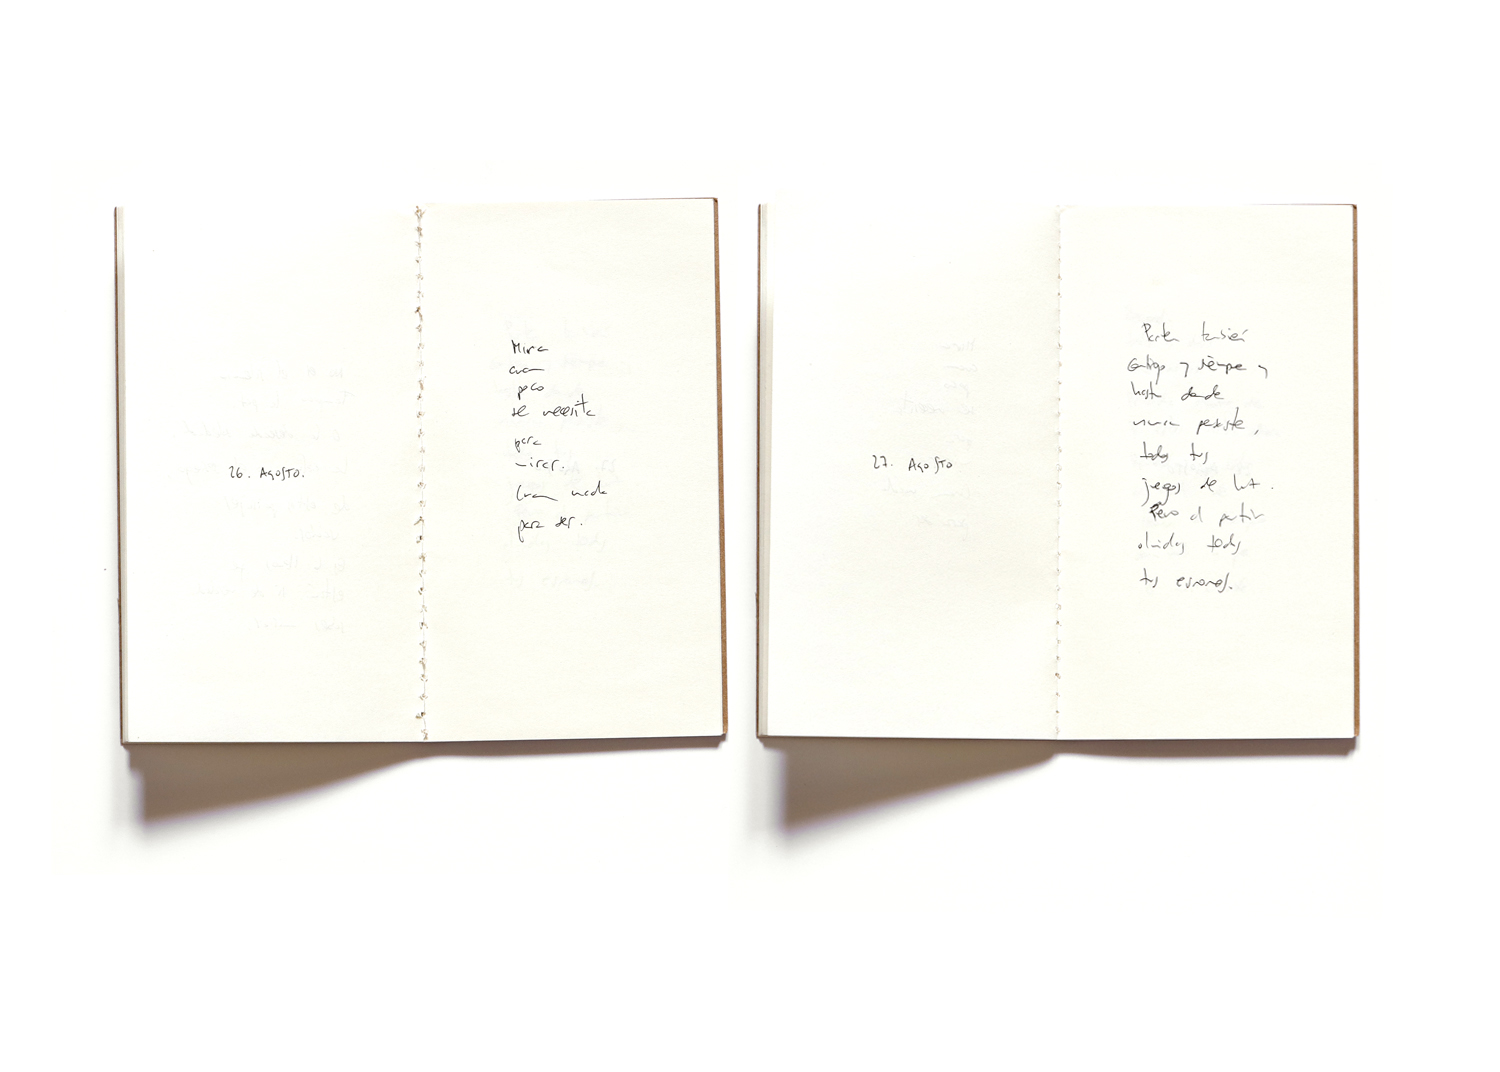 26. Agosto.
Mira
cuan
poco
se necesita
para
mirar.
Cuan nada
para ser.
27. Agosto
Parten también
contigo y siempre y
hasta donde
nunca pensaste,
todos tus
juegos de luz.
Pero al partir
olvidas todos
tus errores.